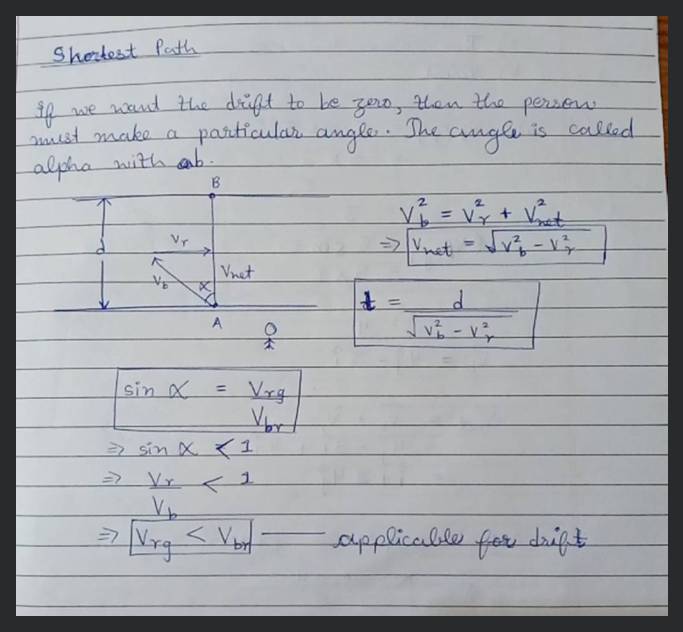 Shortest Path
If we want the drift to be zero, then the person
must make a particular angle. The angle is called
alpha with ab.
B
d
Vr
Vb
α
Vnet
A
V²b = V²r + V²net
=> Vnet = √V²b - V²r
t = d / √V²b - V²r
sin α = Vrg / Vbr
=> sin α < 1
=> Vr / Vb < 1
=> Vrg < Vbr — applicable for drift